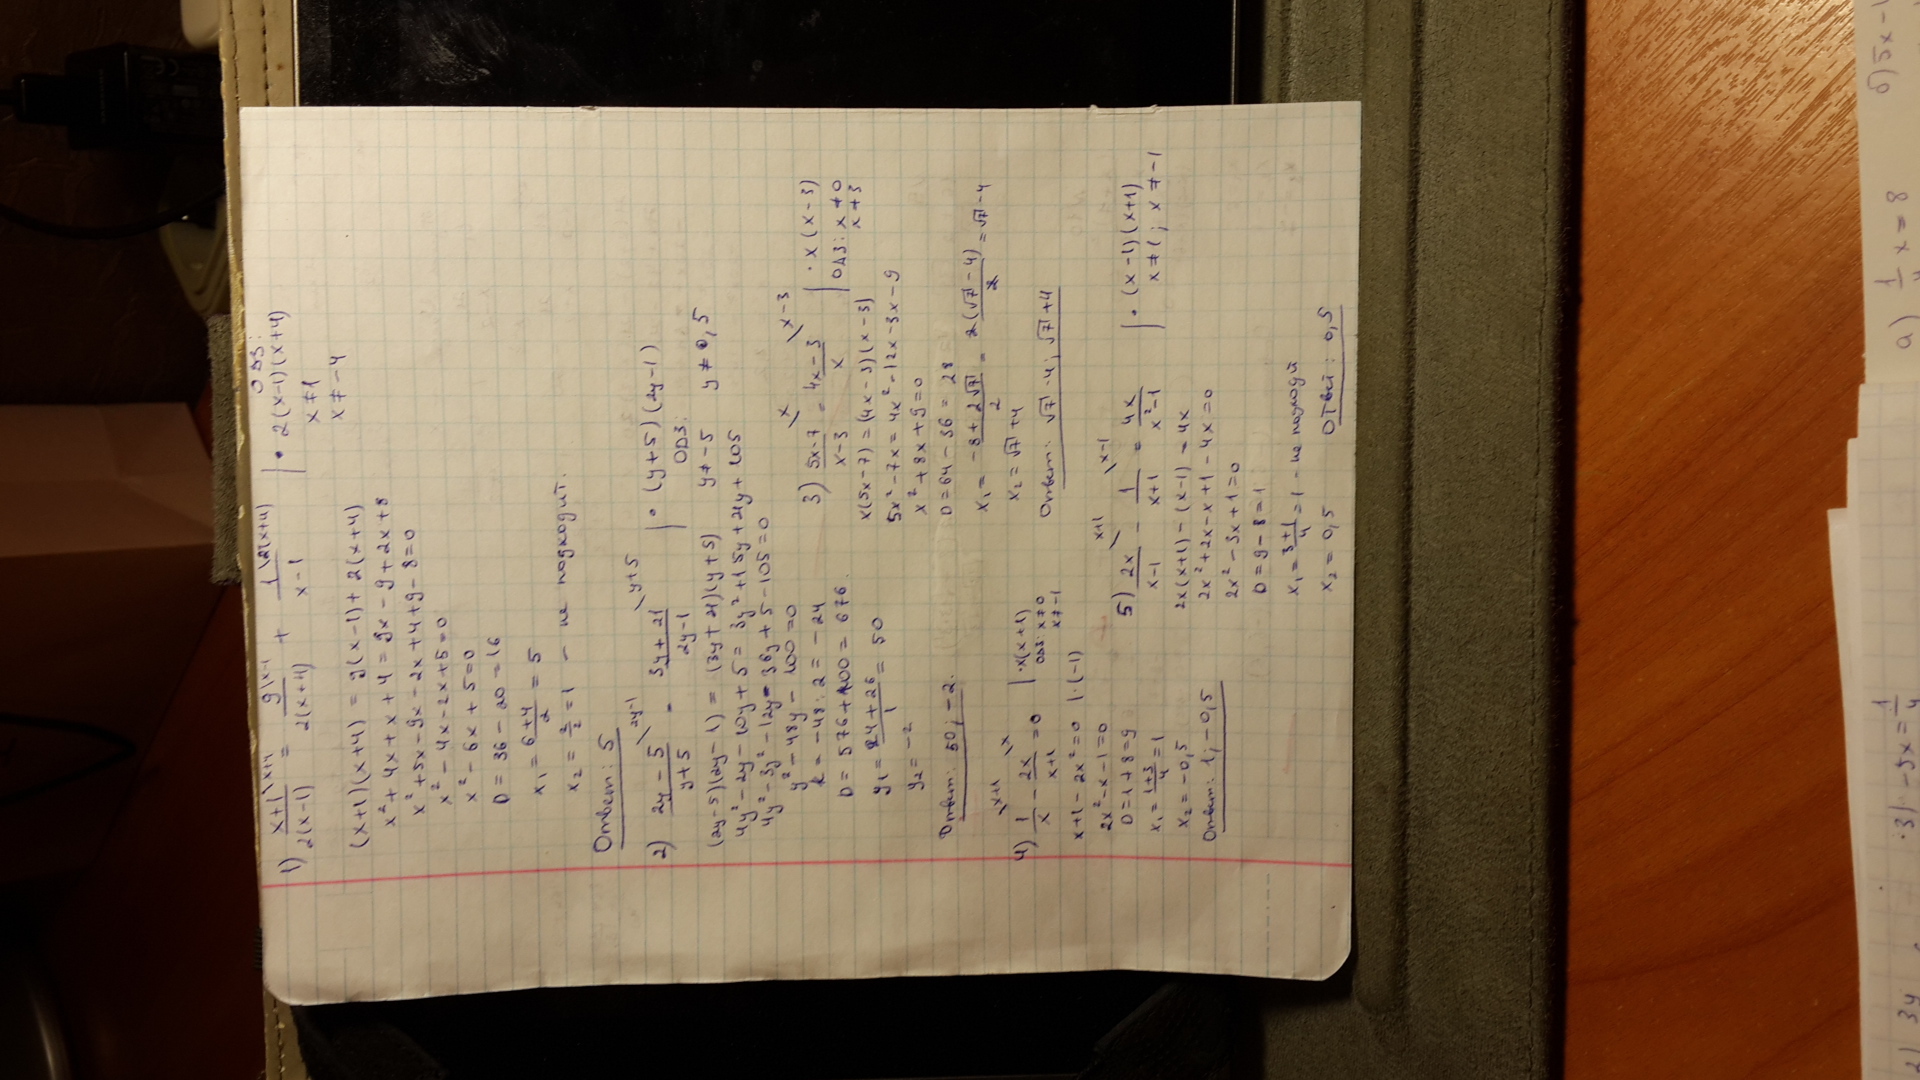 1) x+1\x+4 / 2(x-1) = 9\x-1 / 2(x+4) + 1\2(x+4) / x-1 | · 2(x-1)(x+4)
ОДЗ:
x ≠ 1
x ≠ -4
(x+1)(x+4) = 9(x-1) + 2(x+4)
x² + 4x + x + 4 = 9x - 9 + 2x + 8
x² + 5x - 9x - 2x + 4 + 9 - 8 = 0
x² - 4x - 2x + 5 = 0
x² - 6x + 5 = 0
D = 36 - 20 = 16
x₁ = 6+4 / 2 = 5
x₂ = 2/2 = 1 - не подходит.
Ответ: 5
2) 2y-5 \2y-1 / y+5 = 3y+21 \y+5 / 2y-1 | · (y+5)(2y-1)
ОДЗ:
y ≠ -5 y ≠ 0,5
(2y-5)(2y-1) = (3y+21)(y+5)
4y² - 2y - 10y + 5 = 3y² + 15y + 21y + 105
4y² - 3y² - 12y - 36y + 5 - 105 = 0
y² - 48y - 100 = 0
k = -48 : 2 = -24
D = 576 + 100 = 676.
y₁ = 24+26 / 1 = 50
y₂ = -2
Ответ: 50; -2.
3) 5x-7 \x / x-3 = 4x-3 \x-3 / x | · x(x-3)
ОДЗ: x ≠ 0
x ≠ 3
x(5x-7) = (4x-3)(x-3)
5x² - 7x = 4x² - 12x - 3x - 9
x² + 8x + 9 = 0
D = 64 - 36 = 28
x₁ = -8 + 2√7 / 2 = 2(√7 - 4) / 2 = √7 - 4
x₂ = √7 + 4
Ответ: √7 - 4; √7 + 4
4) 1 \x+1 / x - 2x \x / x+1 = 0 | · x(x+1)
ОДЗ: x ≠ 0
x ≠ -1
x + 1 - 2x² = 0 | · (-1)
2x² - x - 1 = 0
D = 1 + 8 = 9
x₁ = 1+3 / 4 = 1
x₂ = -0,5
Ответ: 1; -0,5
5) 2x \x+1 / x-1 - 1 \x-1 / x+1 = 4x / x²-1 | · (x-1)(x+1)
x ≠ 1; x ≠ -1
2x(x+1) - (x-1) = 4x
2x² + 2x - x + 1 - 4x = 0
2x² - 3x + 1 = 0
D = 9 - 8 = 1
x₁ = 3+1 / 4 = 1 - не подходи
x₂ = 0,5 Ответ: 0,5
а) 1/4 x = 8 б) 5x -